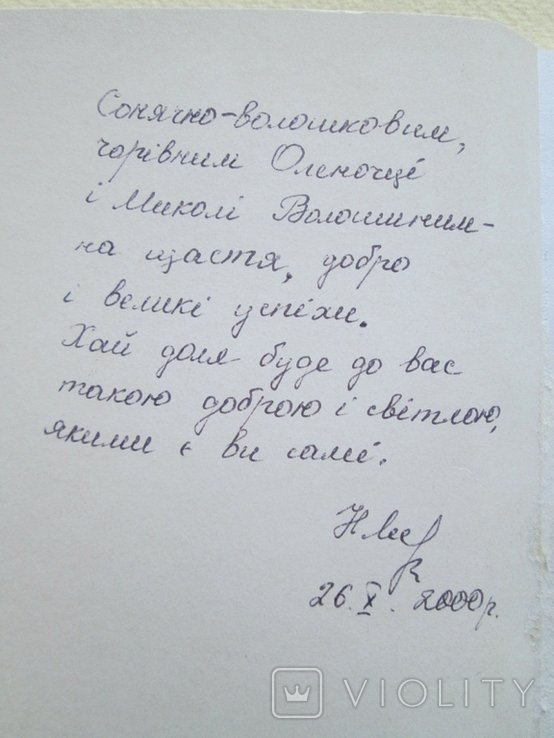 Сонячно-волошковим,
чарівним Оленочці
і Миколі Волошиним -
на щастя, добро
і великі успіхи.
Хай доля буде до вас
такою доброю і світлою,
якими є ви самі.
26. X. 2000 р.
VIOLITY